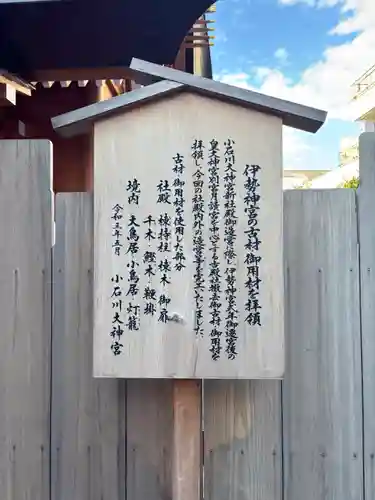 伊勢神宮の古材御用材を拝領
小石川大神宮新社殿御造営に際し伊勢神宮式年御遷宮後の
皇大神宮別宮月讀宮を中心とする殿社撤去御古材御用材を
拝領し、今回の社殿内外の造営事を完工いたしました。
古材御用材を使用した部分
社殿 棟持柱 棟木 御扉
千木 鰹木 鞭掛
境内 大鳥居 小鳥居 灯籠
令和三年五月 小石川大神宮